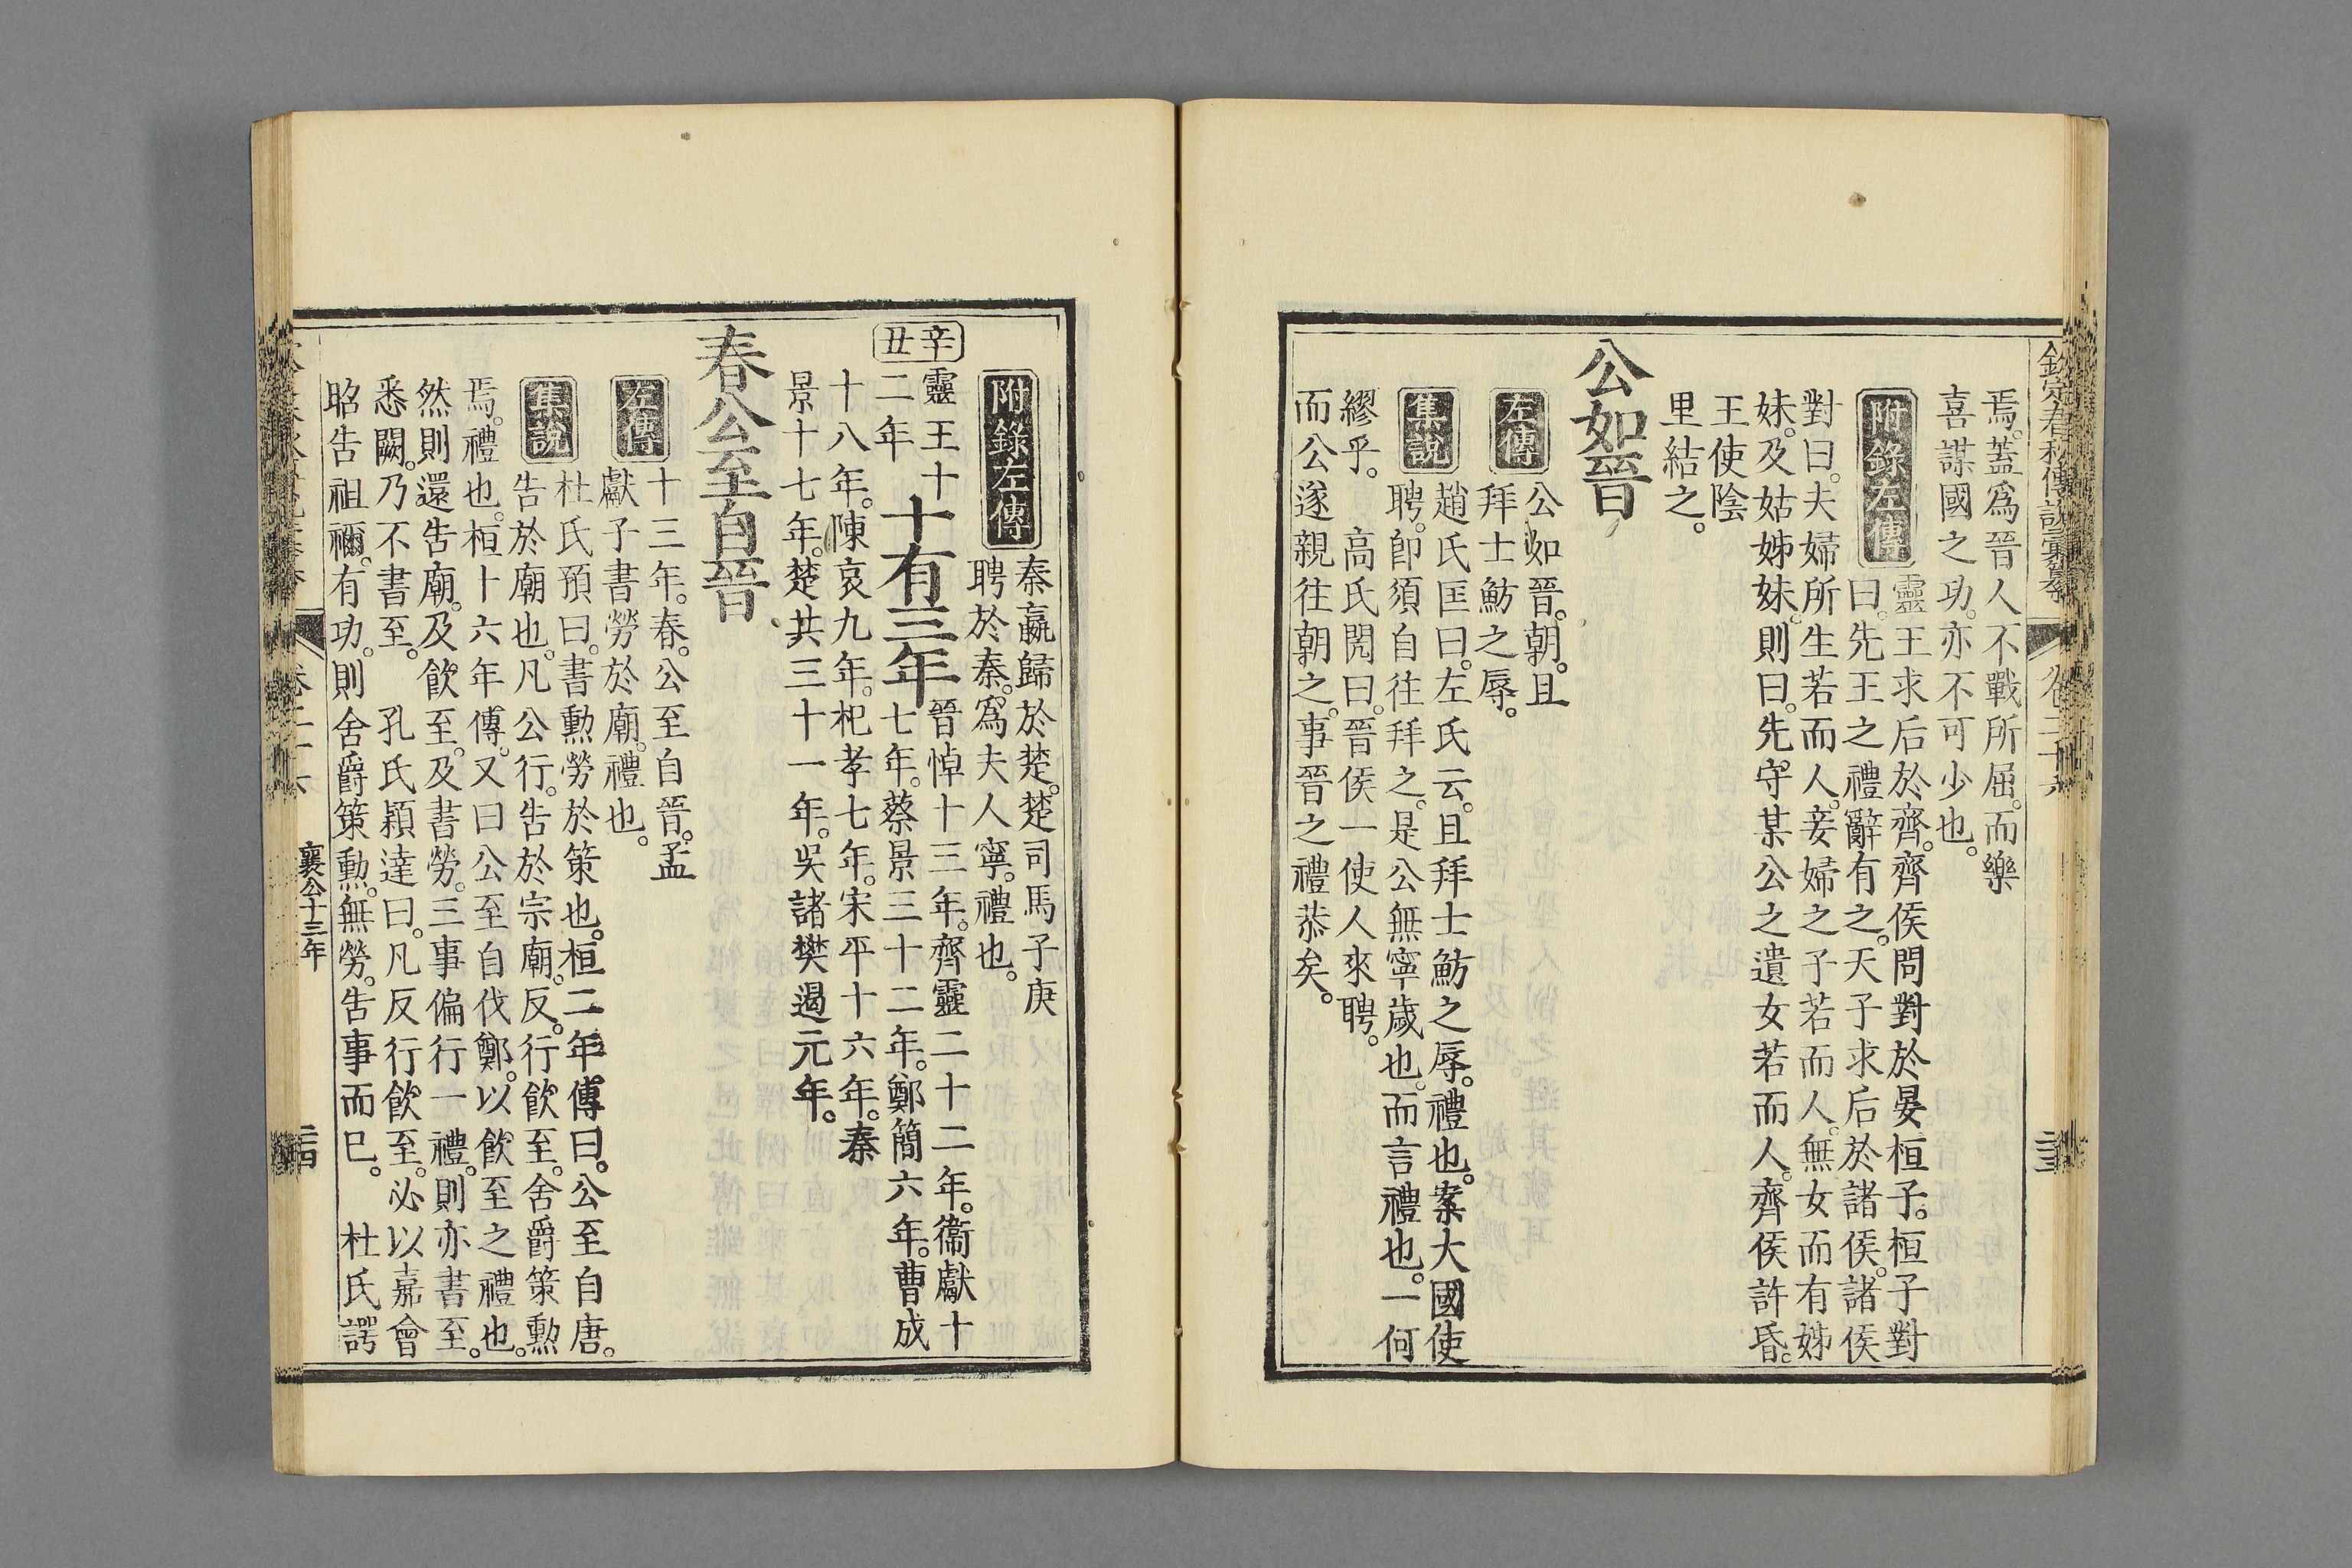 欽定春秋傳說彙纂 卷二十六 二十三
焉。蓋爲晉人不戰所屈。而樂
喜謀國之功。亦不可少也。
附錄左傳 靈王求后於齊。齊侯問對於晏桓子。桓子對
曰。先王之禮辭有之。天子求后於諸侯。諸侯
對曰。夫婦所生若而人。妾婦之子若而人。無女而有姊
妹。及姑姊妹。則曰。先守某公之遺女若而人。齊侯許昏。
王使陰
里結之。
公如晉
左傳 公如晉。朝。且
拜士魴之辱。
集說 趙氏匡曰。左氏云。且拜士魴之辱。禮也。案大國使
聘。卽須自往拜之。是公無寧歲也。而言禮也。一何
繆乎。 高氏閌曰。晉侯一使人來聘。
而公遂親往朝之。事晉之禮恭矣。
附錄左傳 秦嬴歸於楚。楚司馬子庚
聘於秦。爲夫人寧。禮也。
辛丑
靈王十
二年
十有三年
晉悼十三年。齊靈二十二年。衞獻十
七年。蔡景三十二年。鄭簡六年。曹成
十八年。陳哀九年。杞孝七年。宋平十六年。秦
景十七年。楚共三十一年。吳諸樊遏元年。
春公至自晉
左傳 十三年。春。公至自晉。孟
獻子書勞於廟。禮也。
集說 杜氏預曰。書勳勞於策也。桓二年傳曰。公至自唐。
告於廟也。凡公行。告於宗廟。反。行飮至。舍爵策勳
焉。禮也。桓十六年傳。又曰公至自伐鄭。以飮至之禮也。
然則還告廟。及飮至。及書勞。三事偏行一禮。則亦書至。
悉闕。乃不書至。 孔氏穎達曰。凡反行飮至。必以嘉會
昭告祖禰。有功。則舍爵策勳。無勞。告事而已。 杜氏諤
卷二十六 襄公十三年 二十四